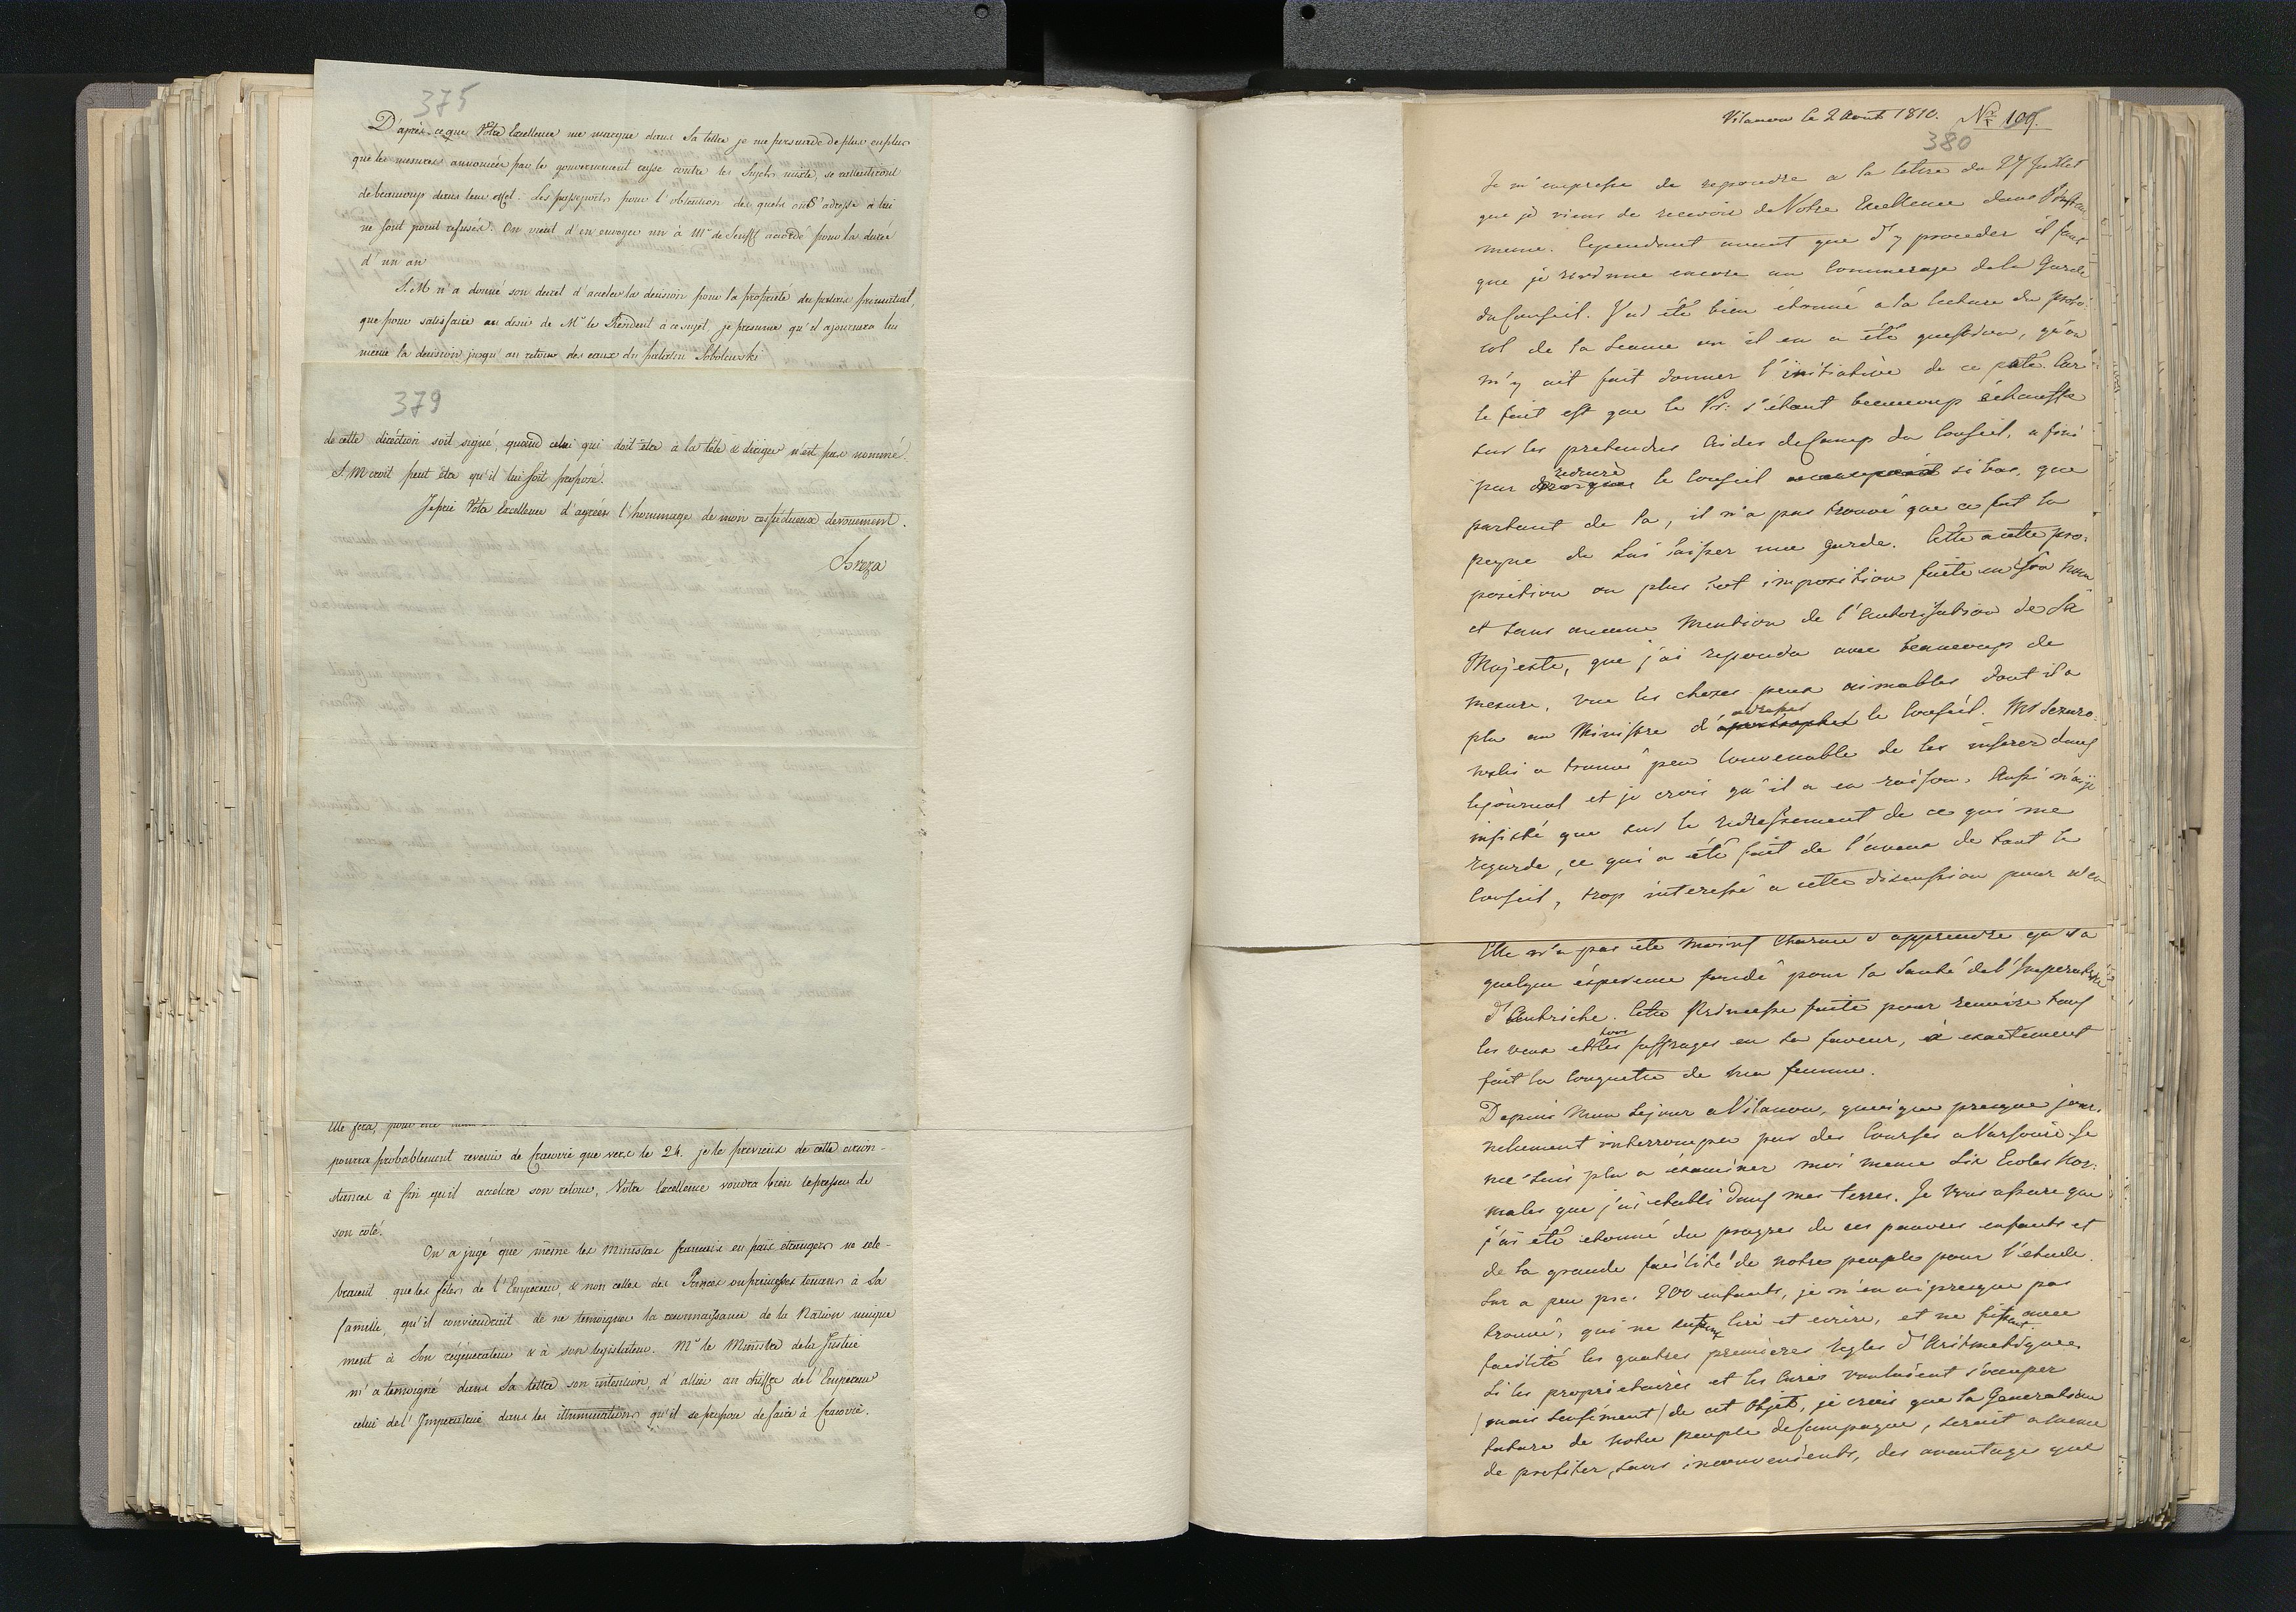 375
D'après ce que Votre Excellence me marque dans Sa lettre je me persuade de plus en plus
que les mesures annoncées par le gouvernement russe contre les Sujets mixte, se rallentiront
de beaucoup dans leur effet. Les passeports pour l'obtention des quels on s'adresse à lui
ne sont point refusés. On vient d'en envoyer un à Mr de Senfft accordé pour la durée
d'un an
S. M n'a donné son decret d'acceler la decision pour la propriété du palais primatial,
que pour satisfaire au desir de Mr le President à ce sujet, je presume qu'il ajournera lui
même la decision jusqu'au retour des eaux du palatin Sobolewski
379
de cette diréction soit signé, quand celui qui doit être à la tête & diriger n'est pas nommé.
S. M croit peut être qu'il lui soit proposé.
Je prie Votre Excellence d'agréer l'hommage de mon respectueux devouement.
Breza
Elle fera, pour être
pourra probablement revenir de Cracovie que vers le 24. je le previens de cette circon-
stances à fin qu'il accelere son retour, Votre Excellence voudra bien le presser de
son coté.
On a jugé que même les Ministres francois en païs etrangers ne cele-
braient que les fêtes de l'Empereur, & non celles des Princes ou princesses tenans à Sa
famille, qu'il conviendrait de ne temoigner la reconnaissance de la Nation unique
ment à Son régénerateur & à son legislateur. Mr le Ministre de la Justice
m'a temoigné dans Sa lettre son intension, d'allier au chiffre de l'Empereur
celui de l'Imperatrice dans les illuminations qu'il se propose de faire à Cracovie.
Vilanow le 2 Aout 1810. No 109.
380
Je m'empresse de repondre a la lettre du 27 Juillet
que je viens de recevoir de Votre Excellence dans l'instant
meme. Cependant avant que d'y proceder il faut
que je revienne encore au commerage de la Garde
du Conseil. J'ai été bien étonné a la lecture du proto-
col de la Seance ou il en a été question, qu'on
m'y ait fait donner l'initiative de ce paté. Car
le fait est que le Pr: s'étant beaucoup échauffé
sur les pretendus Aides de Camp du Conseil, a fini
par reduire le Conseil si bas, que
partant de la, il n'a pas trouvé que ce fut la
peyne de lui laisser une garde. C'est a cette pro-
position ou plus tot imposition faite en son nom
et sans aucune mention de l'autorisation de Sa
Majesté, que j'ai repondu avec beaucoup de
mesure, vue les choses peux aimables dont il a
plu au Ministre d'adresser le Conseil. Mr
a trouvé peu convenable de les inserer dans
le journal et je crois qu'il a eu raison. Aussi n'ai je
insisté que sur le redressement de ce qui me
regarde, ce qui a été fait de l'aveux de tout le
Conseil, trop interessé a cette discussion pour n'en
Elle n'a pas été moins charmé d'apprendre qu'il a
quelque ésperence fondé pour la Santé de l'Imperatrice
d'Autriche. Cette Princesse faite pour reunire tous
les veux et tous les suffrages en sa faveur, à exactement
fait la conquette de ma femme.
Depuis mon sejour a Vilanow, quoique presque jour-
nelement interrompu par des Courses a Varsovie Je
me suis plu a éxaminer moi meme Six Ecoles Nor-
males que j'ai etabli dans mes terres. Je vous assure que
j'ai été etonné du progres de ces pauvres enfants et
de la grande facilité de notre peuple pour l'etude.
Sur a peu pres 200 enfants, je n'en ai presque pas
trouvé, qui ne lire et ecrire, et ne avec
facilité les quatres premieres regles d'Aritmetique.
Si les proprietaires et les Curés vouloient s'occuper
(mais sensément) de cet objet, je crois que la Generation
future de notre peuple de Campagne, seroit a meme
de profiter, sans inconvenients, des avantage que